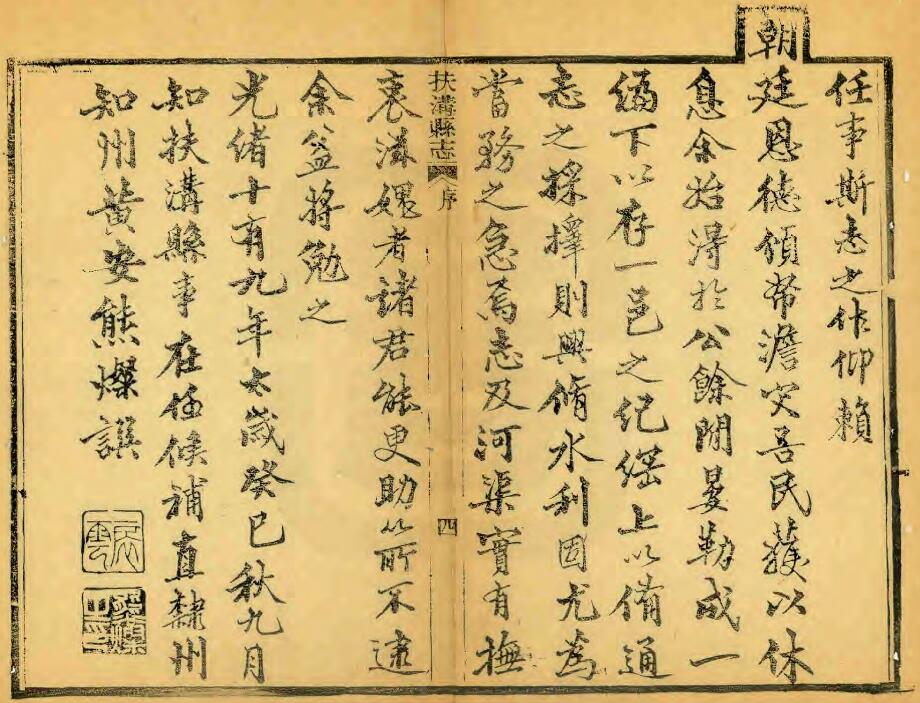 任事斯志之作仰賴
朝廷恩德傾帑澹災吾民獲以休
息余始得於公餘閒晏勒成一
編下以存一邑之紀繇上以備通
志之採擇則興脩水利固尤爲
當務之急焉志及河渠實有撫
扶溝縣志 序 四
衷滋媿者諸君能更助以所不逮
余益將勉之
光緒十有九年太歲癸巳秋九月
知扶溝縣事在任候補直隸州
知州黄安熊燦譔